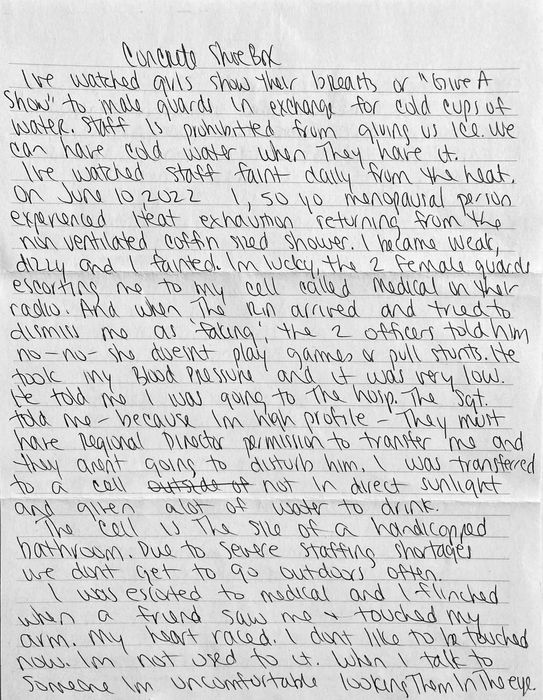 Concrete Shoe Box
I've watched girls show their breasts or "Give A
Show" to male guards in exchange for cold cups of
water. Staff is prohibited from giving us ice. We
can have cold water when They have it.
I've watched staff faint daily from the heat.
On June 10, 2022 I, 50 yo menopausal person
experienced Heat exhaustion returning from the
non ventilated coffin sized shower. I became weak,
dizzy and I fainted. Im lucky, the 2 female guards
escorting me to my cell called medical on their
radio. And when The RN arrived and tried to
dismiss me as 'faking', the 2 officers told him
no-no- she doesnt play games or pull stunts. He
took my Blood Pressure and it was very low.
He told me I was going to The hosp. The Sgt.
told me - because Im high profile - They must
have Regional Director permission to transfer me and
they arent going to disturb him. I was transferred
to a cell outside of not in direct sunlight
and given alot of water to drink.
The cell is The size of a handicapped
bathroom. Due to severe staffing shortages
we dont get to go outdoors often.
I was escorted to medical and I flinched
when a friend saw me + touched my
arm. My heart raced. I dont like to be touched
now. Im not used to it. When I talk to
someone Im uncomfortable looking Them In The eye.